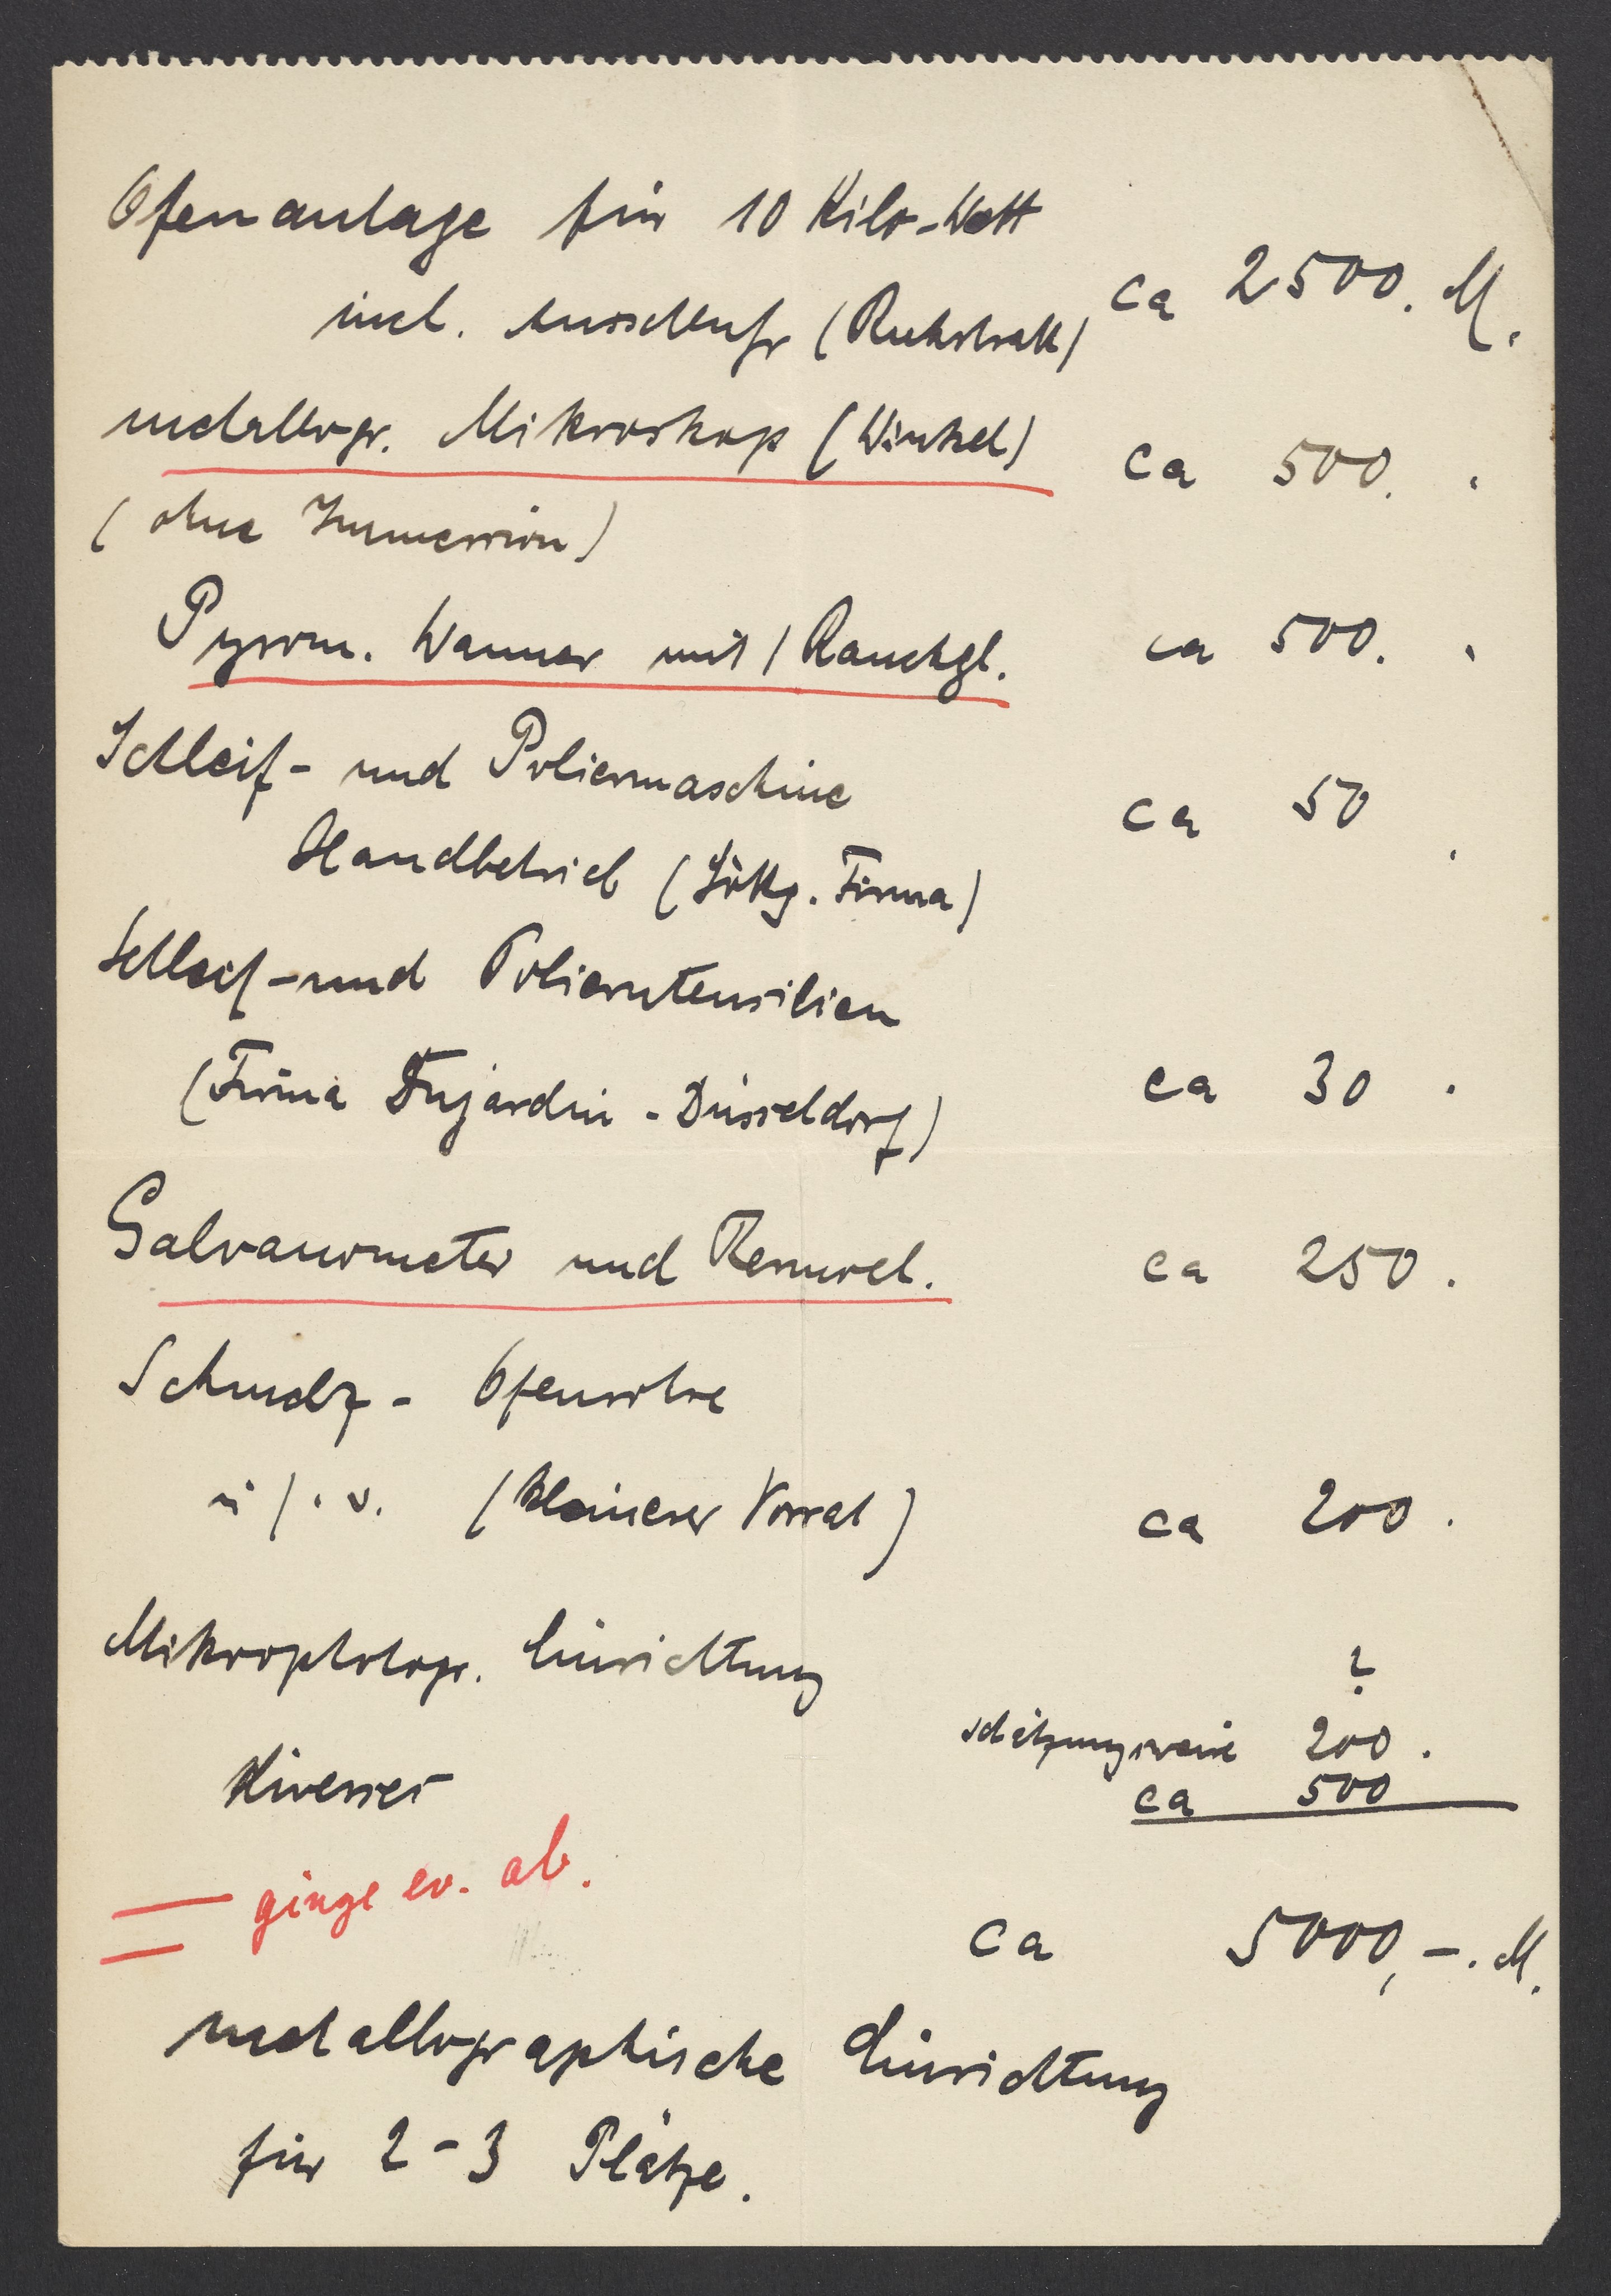 Ofenanlage für 10 Kilo-Watt
incl. Anschluß (Ruhstratt) ca 2500. M.
metallogr. Mikroskop (Winkel) ca 500.
(ohne Immersion)
Pyrom. Wanner mit 1 Rauchgl. ca 500.
Schleif- und Poliermaschine
ca 50
Handbetrieb (Göttg. Firma)
Schleif- und Polierutensilien
(Firma Dujardin - Düsseldorf) ca 30 .
Galvanometer und Element. ca 250.
Schmelz- Ofenrohre
u.s.w. (kleinerer Vorrat) ca 200.
Mikrophotogr. Einrichtung ?
schätzungsweise 200.
Diverses ca 500
ginge ev. ab.
ca 5000,-. M.
metallographische Einrichtung
für 2-3 Plätze.